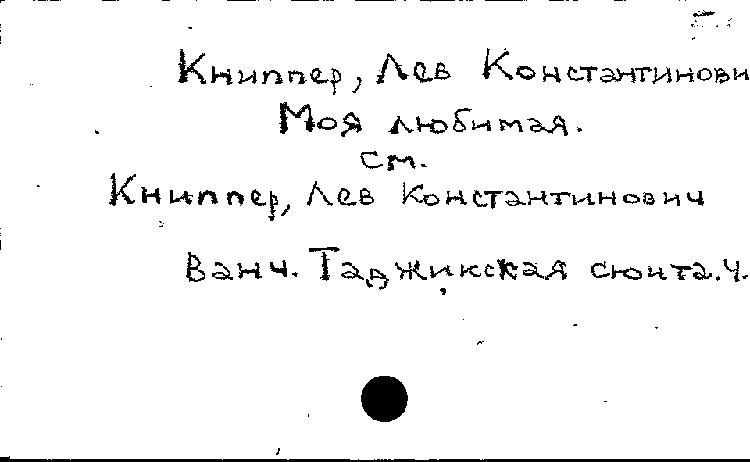 Книппер, Лев Константинови
Моя любимая.
см.
Книппер, Лев Константинович
Ванч. Таджикская сюита. Ч.